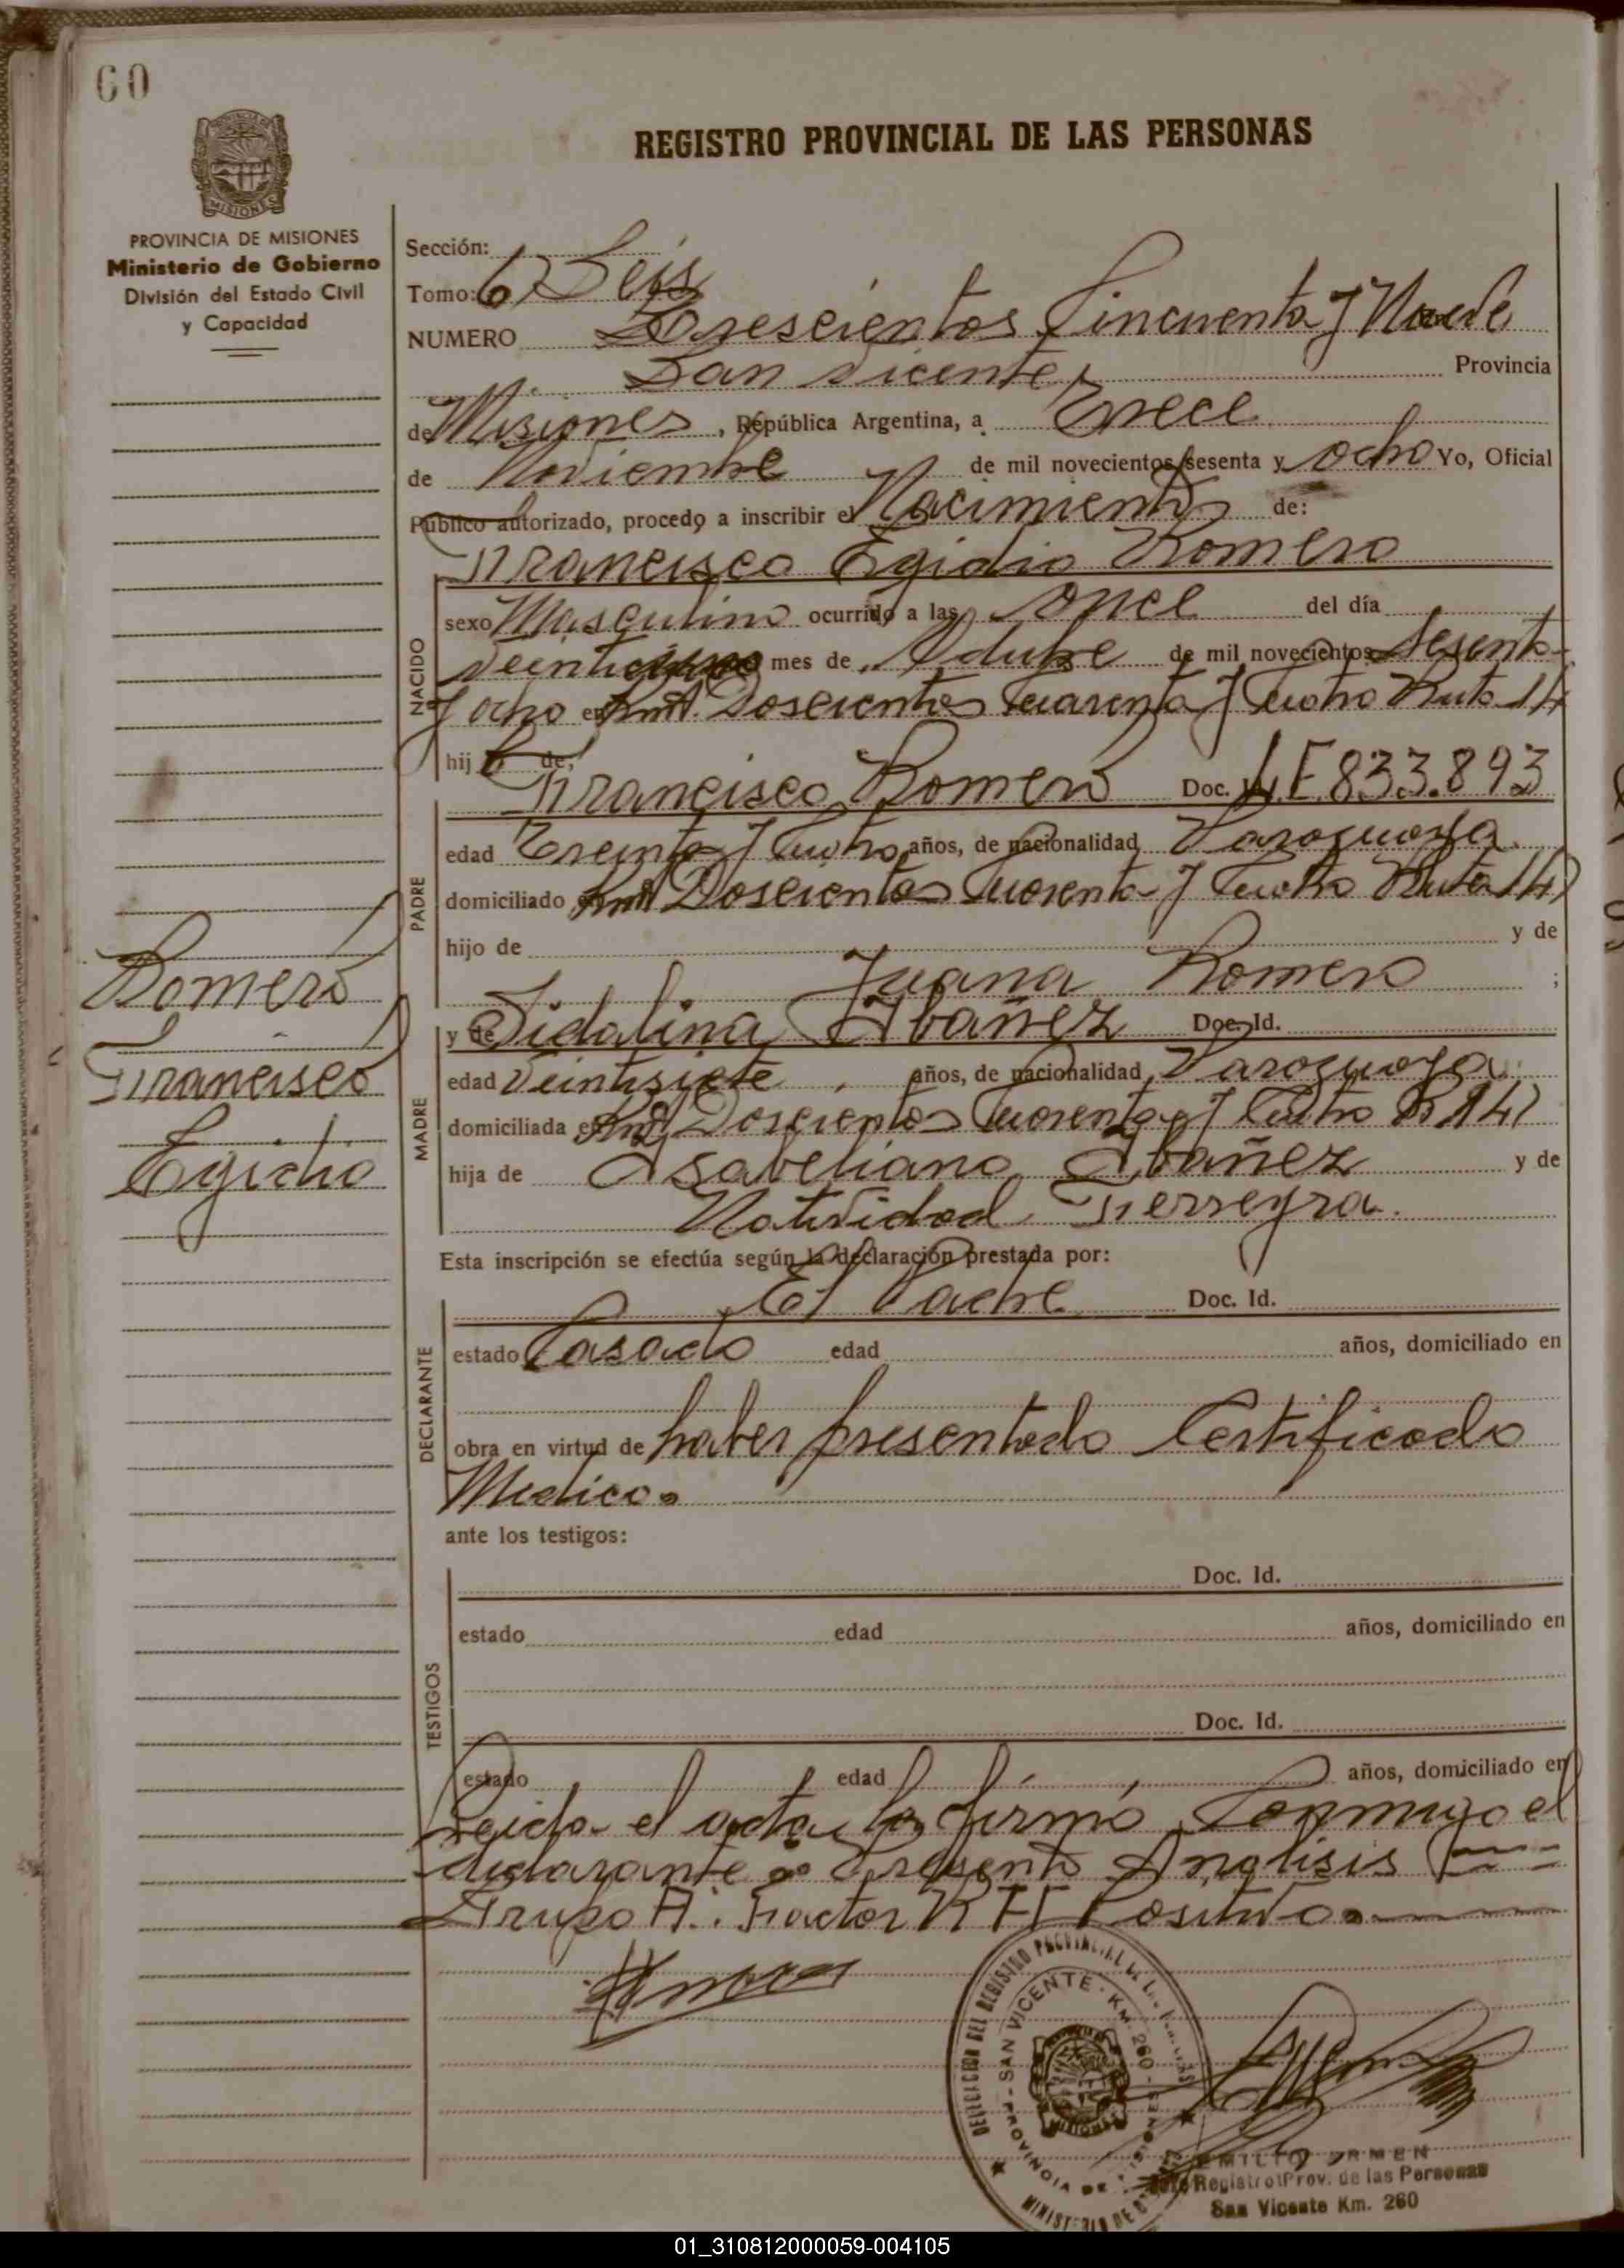 60
REGISTRO PROVINCIAL DE LAS PERSONAS
PROVINCIA DE MISIONES
MISIONES
PROVINCIA DE MISIONES
Ministerio de Gobierno
División del Estado Civil
y Capacidad
Sección:
Tomo: 6) Seis
NUMERO Trescientos Cincuenta y Nueve
San Vicente, Provincia
de Misiones, República Argentina, a Trece
de Noviembre de mil novecientos sesenta y ocho Yo, Oficial
Público autorizado, procedo a inscribir el Nacimiento de:
Francisco Egidio Romero
NACIDO
sexo Masculino ocurrido a las once del día
mes de Octubre de mil novecientos Sesenta
y ocho en Km. Doscientos Cuarenta y Cuatro Ruta 14
hijo de:
PADRE
Francisco Romero Doc. L.E. 833.893
edad Treinta y Cuatro años, de nacionalidad Paraguaya
domiciliado en Km Doscientos Cuarenta y Cuatro Ruta 14)
hijo de y de
Juana Romero ;
MADRE
y de Sidalina Ibañez Doc. Id.
edad Veintisiete años, de nacionalidad Paraguaya
domiciliada en Km Doscientos Cuarenta y Cuatro R 14)
hija de Isabeliano Ibañez y de
Natividad Ferreyra.
Esta inscripción se efectúa según la declaración prestada por:
DECLARANTE
El Padre Doc. Id.
estado Casado edad años, domiciliado en
obra en virtud de haber presentado Certificado
Medico.
ante los testigos:
TESTIGOS
Doc. Id.
estado edad años, domiciliado en
Doc. Id.
estado edad años, domiciliado en
Leida el acta la firmó Conmigo el
declarante. Presentó Analisis
Grupo A. Factor RH Positivo.
Romero
Francisco
Egidio
DELEGACION DEL REGISTRO PROVINCIAL DE LAS PERSONAS
SAN VICENTE - KM. 260 - PROVINCIA DE MISIONES
MISIONES
MINISTERIO DE
EMILIO
Jefe Registro Prov. de las Personas
San Vicente Km. 260
01_310812000059-004105